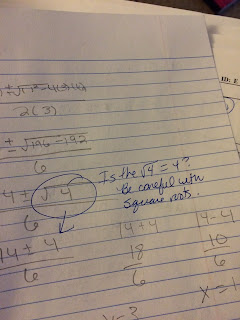 2(3)
± √196-192
6
± √4
Is the √4 = 4?
Be careful with
square roots.
6
14 ± 4
6
14+4
18
6
14-4
10
6